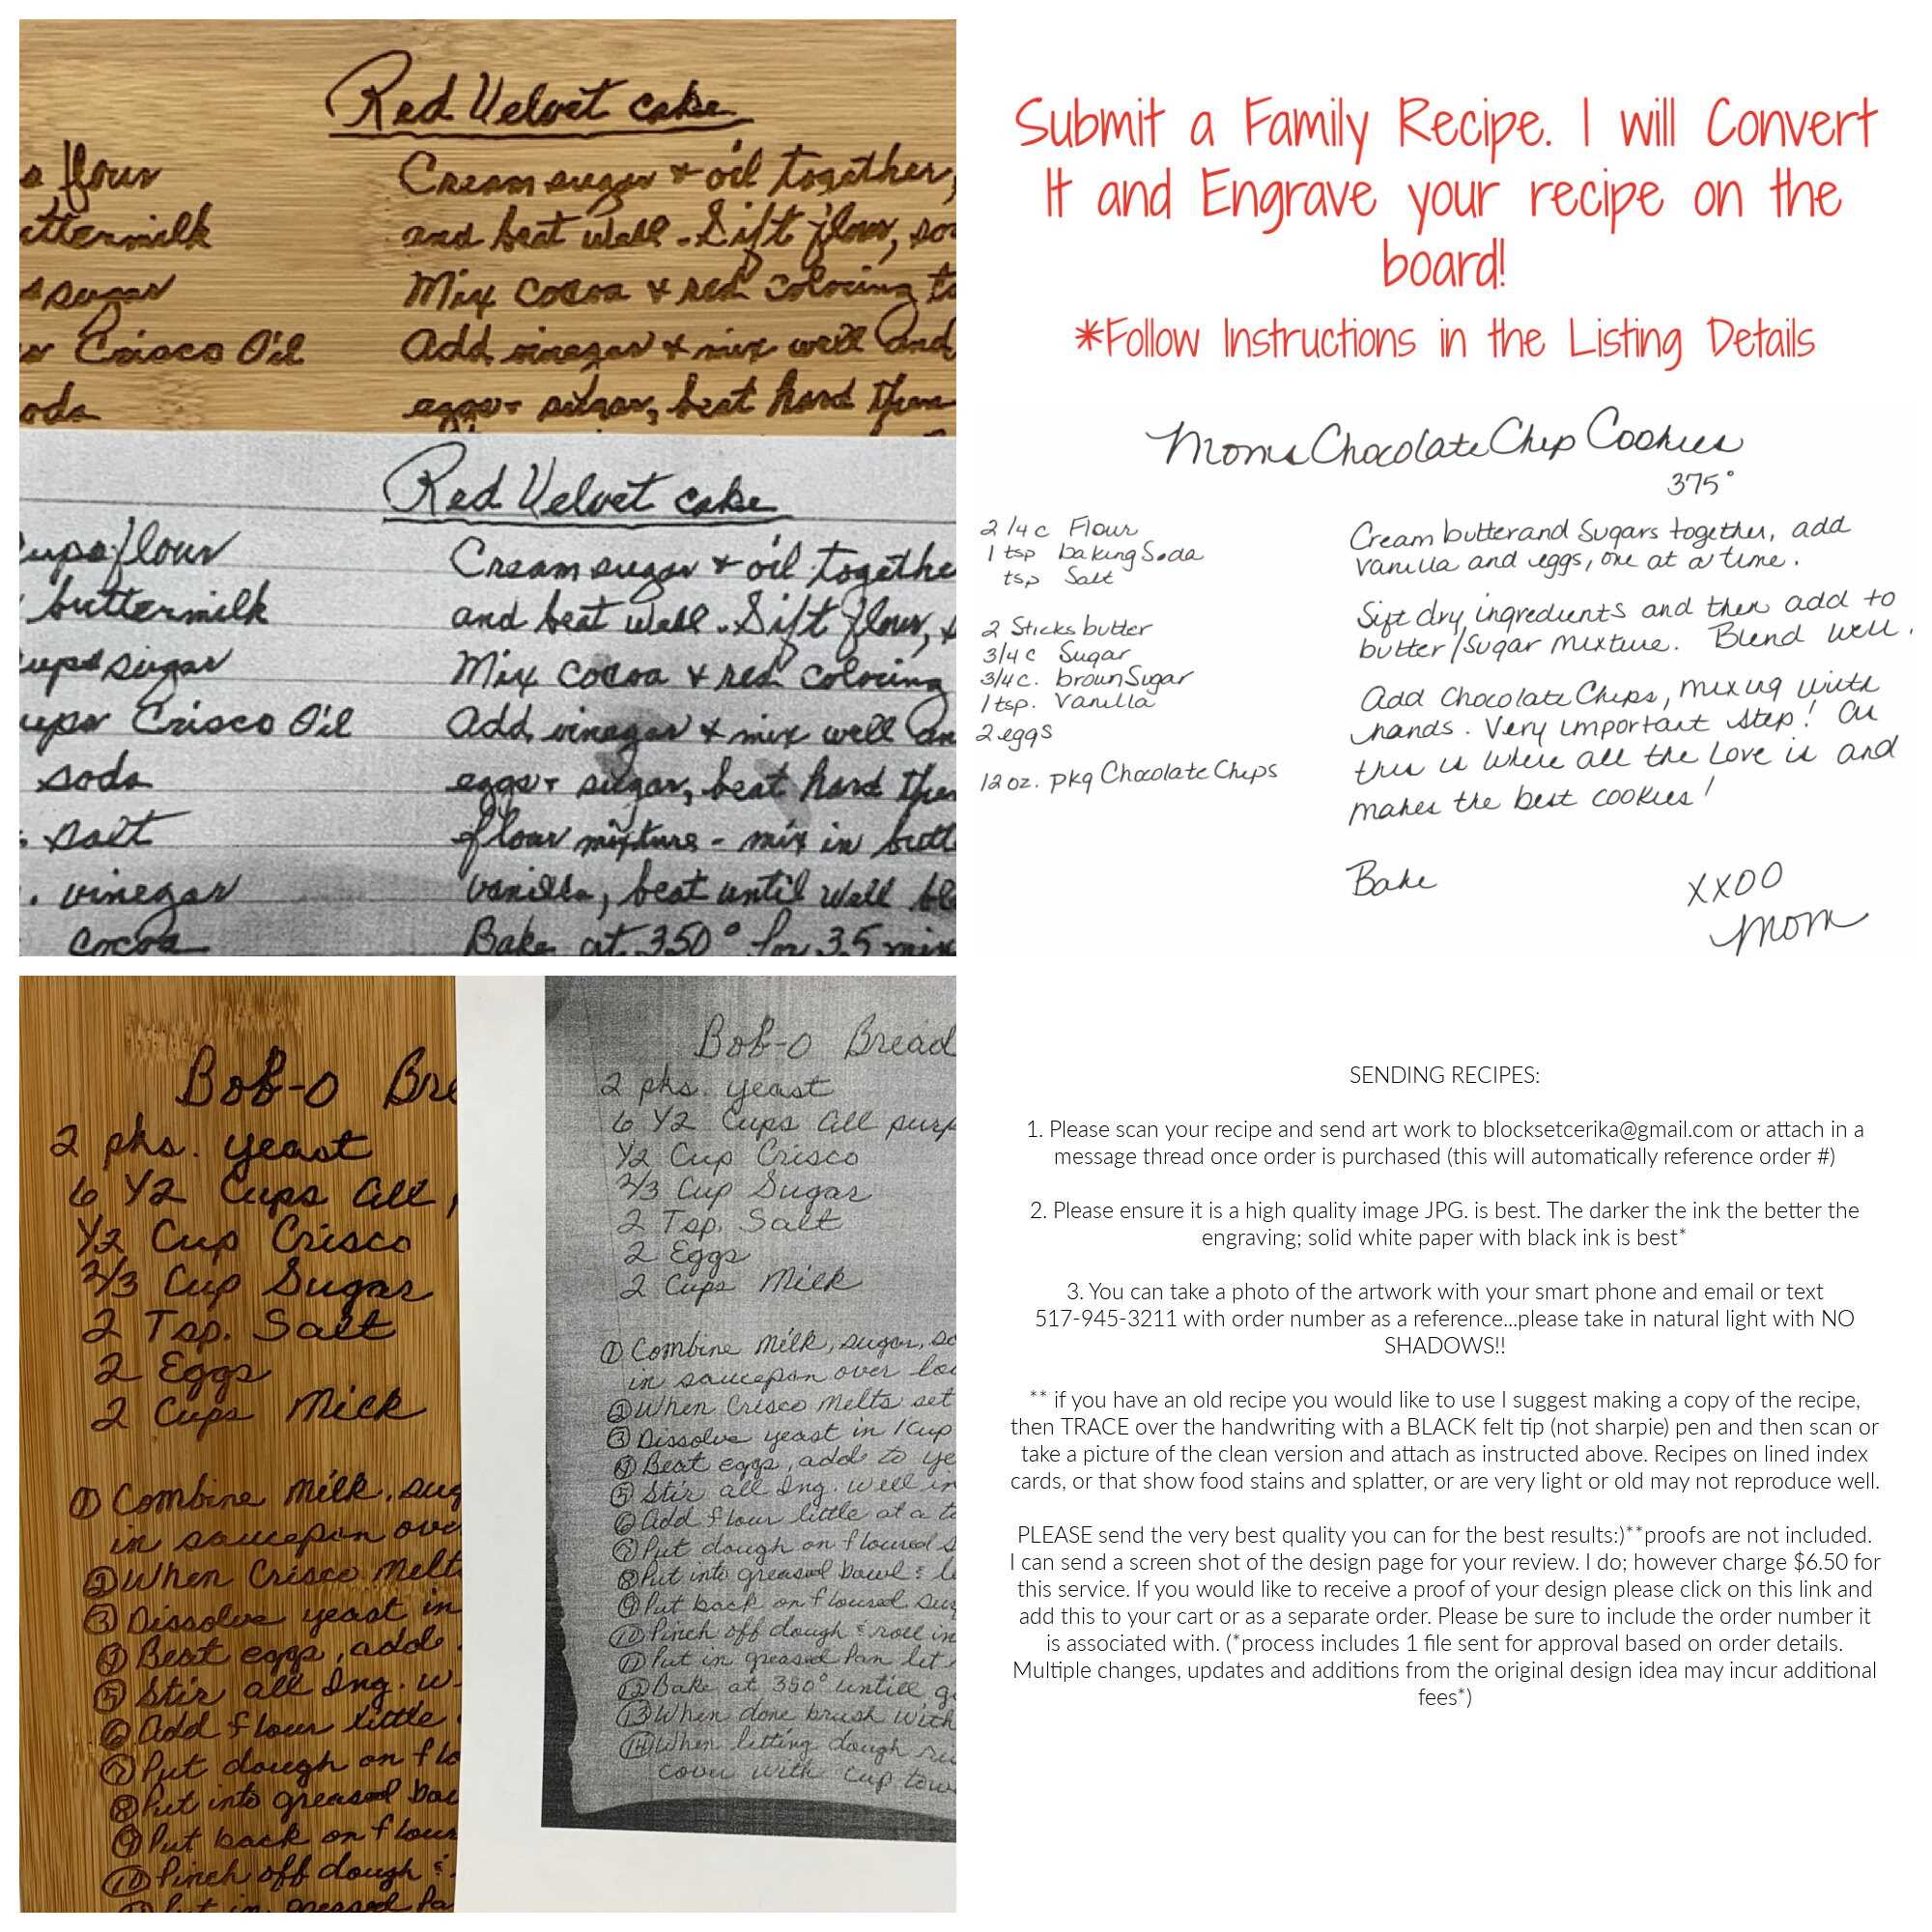 Red Velvet cake
flour
Cream sugar + oil together,
and beat well - Sift flour,
sugar
Mix cocoa + red coloring
Crisco Oil
Add vinegar + mix well and
eggs + sugar, beat hard then
Red Velvet cake
flour
Cream sugar + oil
buttermilk
and beat well. Sift flour,
sugar
Mix cocoa + red coloring
Crisco Oil
Add vinegar + mix well
soda
eggs + sugar, beat hard
salt
flour mixture - mix in
vinegar
vanilla, beat until well
cocoa
Bake at 350° for 35
Submit a Family Recipe. I will Convert
It and Engrave your recipe on the
board!
*Follow Instructions in the Listing Details
Moms Chocolate Chip Cookies
375°
2 1/4 c Flour
1 tsp baking Soda
tsp Salt
2 Sticks butter
3/4 c Sugar
3/4 c. brown Sugar
1 tsp. Vanilla
2 eggs
12 oz. pkg Chocolate Chips
Cream butter and Sugars together, add
vanilla and eggs, one at a time.
Sift dry ingredients and then add to
butter/Sugar mixture. Blend well.
Add Chocolate Chips, mixing with
hands. Very important step! As
this is where all the Love is and
makes the best cookies!
Bake
XXOO
Mom
Bob-o
2 pks. yeast
6 1/2 Cups all
1/2 Cup Crisco
2/3 Cup Sugar
2 Tsp. Salt
2 Eggs
2 Cups Milk
① Combine milk,
in saucepan
② When Crisco
③ Dissolve yeast in
④ Beat eggs, add
⑤ Stir all Ing.
⑥ Add flour little
⑦ Put dough on
⑧ Put into greased
⑨ Put back on
⑩ Pinch off dough &
Put in greased
Bob-o Bread
2 pks. yeast
6 1/2 Cups all
1/2 Cup Crisco
2/3 Cup Sugar
2 Tsp. Salt
2 Eggs
2 Cups Milk
① Combine milk, sugar,
in saucepan over
② When Crisco melts set
③ Dissolve yeast in 1 Cup
④ Beat eggs, add to
⑤ Stir all Ing. well in
⑥ Add flour little at a
⑦ Put dough on floured
⑧ Put into greased bowl &
⑨ Put back on floured
⑩ Pinch off dough & roll in
⑪ Put in greased Pan let
⑫ Bake at 350° untill
⑬ When done brush with
⑭ When letting dough
cover with cup
SENDING RECIPES:
1. Please scan your recipe and send art work to blocksetcerika@gmail.com or attach in a
message thread once order is purchased (this will automatically reference order #)
2. Please ensure it is a high quality image JPG. is best. The darker the ink the better the
engraving; solid white paper with black ink is best*
3. You can take a photo of the artwork with your smart phone and email or text
517-945-3211 with order number as a reference...please take in natural light with NO
SHADOWS!!
** if you have an old recipe you would like to use I suggest making a copy of the recipe,
then TRACE over the handwriting with a BLACK felt tip (not sharpie) pen and then scan or
take a picture of the clean version and attach as instructed above. Recipes on lined index
cards, or that show food stains and splatter, or are very light or old may not reproduce well.
PLEASE send the very best quality you can for the best results:)**proofs are not included.
I can send a screen shot of the design page for your review. I do; however charge $6.50 for
this service. If you would like to receive a proof of your design please click on this link and
add this to your cart or as a separate order. Please be sure to include the order number it
is associated with. (*process includes 1 file sent for approval based on order details.
Multiple changes, updates and additions from the original design idea may incur additional
fees*)